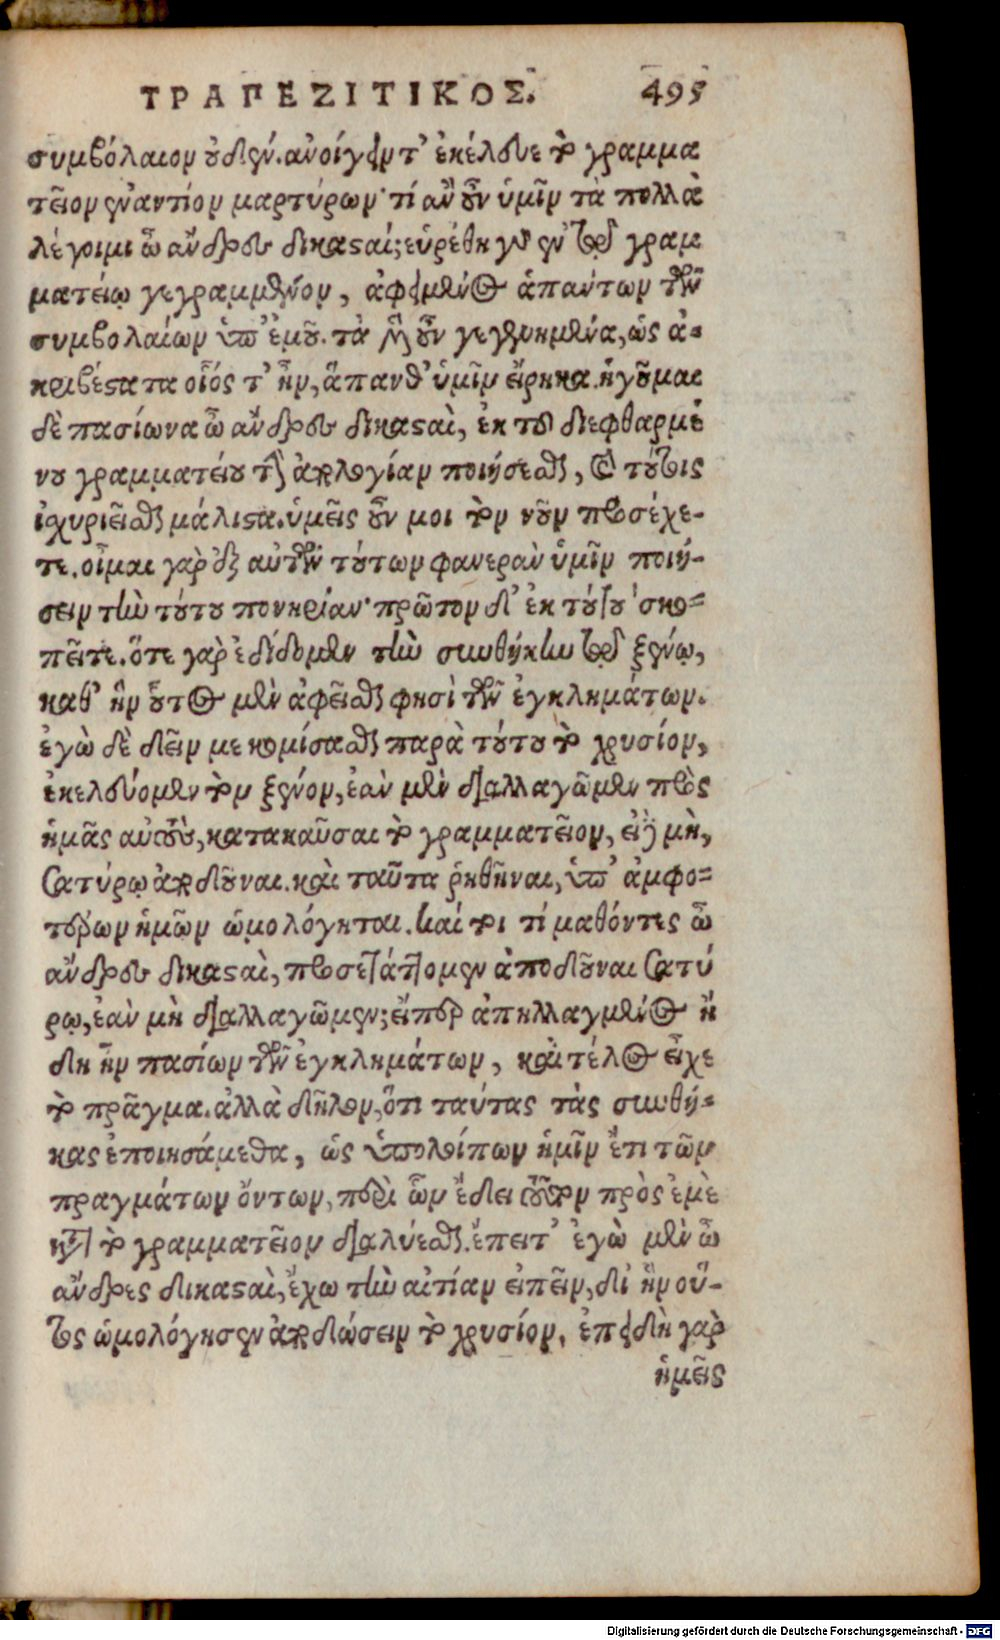 ΤΡΑΠΕΖΙΤΙΚΟΣ. 495
συμβόλαιον οὐδέν. ἀνοίγειν τ' ἐκέλευε τὸ γραμμα
τεῖον ἐναντίον μαρτύρων· τί ἂν οὖν ὑμῖν τὰ πολλὰ
λέγοιμι ὦ ἄνδρες δικασαί; εὑρέθη γὰρ ἐν τῷ γραμ
ματείῳ γεγραμμένον, ἀφειμένος ἁπάντων τῶν
συμβολαίων ὑπ' ἐμοῦ. τὰ μὲν οὖν γεγενημένα, ὡς ἀ-
κριβέστατα οἷός τ' ἦν, ἅπανθ' ὑμῖν εἴρηκα. ἡγοῦμαι
δὲ πασίωνα ὦ ἄνδρες δικασταὶ, ἐκ τοῦ διεφθαρμέ
νου γραμματείου τὴν ἀπολογίαν ποιήσεσθαι, καὶ τούτοις
ἰσχυριεῖσθαι μάλιστα. ὑμεῖς οὖν μοι τὸν νοῦν προσέχε-
τε. οἶμαι γὰρ ἐξ αὐτῶν τούτων φανερὰν ὑμῖν ποιή-
σειν τὴν τούτου πονηρίαν· πρῶτον δ' ἐκ τούτου σκο-
πεῖτε. ὅτε γὰρ ἐδίδομεν τὴν συνθήκην τῷ ξένῳ,
καθ' ἣν οὗτος μὲν ἀφεῖσθαι φησὶ τῶν ἐγκλημάτων.
ἐγὼ δὲ δεῖν με κομίσασθαι παρὰ τούτου τὸ χρυσίον,
ἐκελεύομεν τὸν ξένον, ἐὰν μὲν διαλλαγῶμεν πρὸς
ἡμᾶς αὐτοὺς, κατακαῦσαι τὸ γραμματεῖον, εἰ δὲ μὴ,
Σατύρῳ ἀποδοῦναι. καὶ ταῦτα ῥηθῆναι, ὑπ' ἀμφο-
τέρων ἡμῶν ὡμολόγηται. καί τοι τί μαθόντες ὦ
ἄνδρες δικασταὶ, προσετάττομεν ἀποδοῦναι Σατύ
ρῳ, ἐὰν μὴ διαλλαγῶμεν; εἴπερ ἀπηλλαγμένος ἤ
δη ἦν πασίων τῶν ἐγκλημάτων, καὶ τέλος εἶχε
τὸ πρᾶγμα. ἀλλὰ δῆλον, ὅτι ταύτας τὰς συνθή-
κας ἐποιησάμεθα, ὡς ὑπολοίπων ἡμῖν ἔτι τῶν
πραγμάτων ὄντων, περὶ ὧν ἔδει τοῦτον πρὸς ἐμὲ
κατὰ τὸ γραμματεῖον διαλύεσθαι. ἔπειτ' ἐγὼ μὲν ὦ
ἄνδρες δικασταὶ, ἔχω τὴν αἰτίαν εἰπεῖν, δι' ἣν οὗ-
τος ὡμολόγησεν ἀποδώσειν τὸ χρυσίον, ἐπειδὴ γὰρ
ἡμεῖς
Digitalisierung gefördert durch die Deutsche Forschungsgemeinschaft - DFG